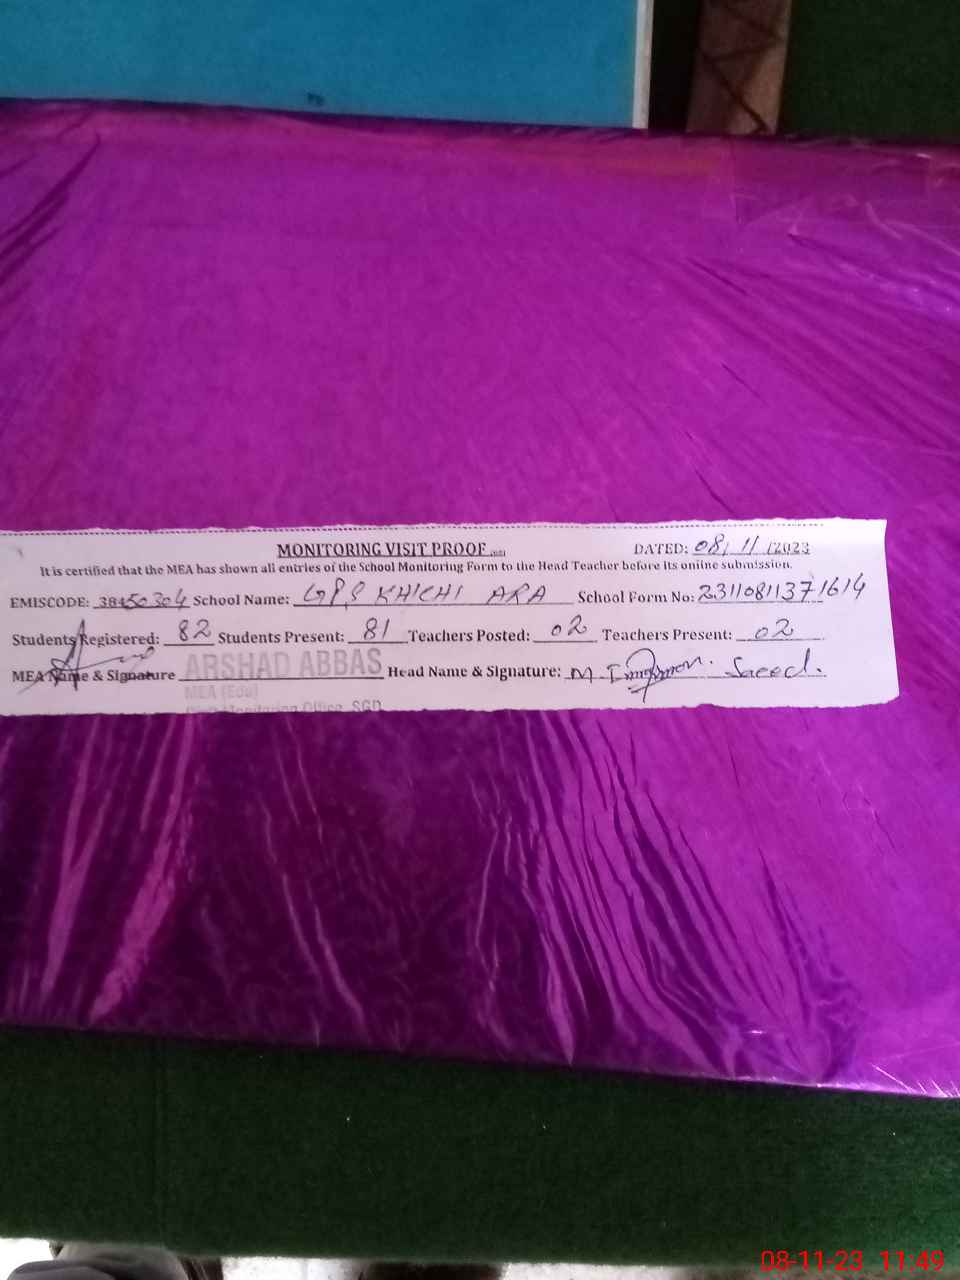 MONITORING VISIT PROOF DATED: 08/11/2023
It is certified that the MEA has shown all entries of the School Monitoring Form to the Head Teacher before its online submission.
EMISCODE: 38450304 School Name: GPS KHICHI ARA School Form No: 23110811371614
Students Registered: 82 Students Present: 81 Teachers Posted: 02 Teachers Present: 02
MEA Name & Signature ARSHAD ABBAS Head Name & Signature: M. Saeed.
MEA (Edu)
Monitoring Office, SGD
08-11-23 11:49